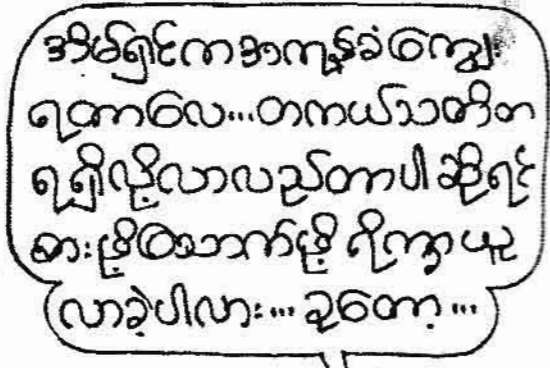 အိမ်ရှင်ကအကုန်ခံကျွေး
ရတာလေ...တကယ်သတိတ
ရရှိလို့လာလည်တာပါဆိုရင်
စားဖို့သောက်ဖို့ ရိက္ခာယူ
လာခဲ့ပါလား... ခုတော့...